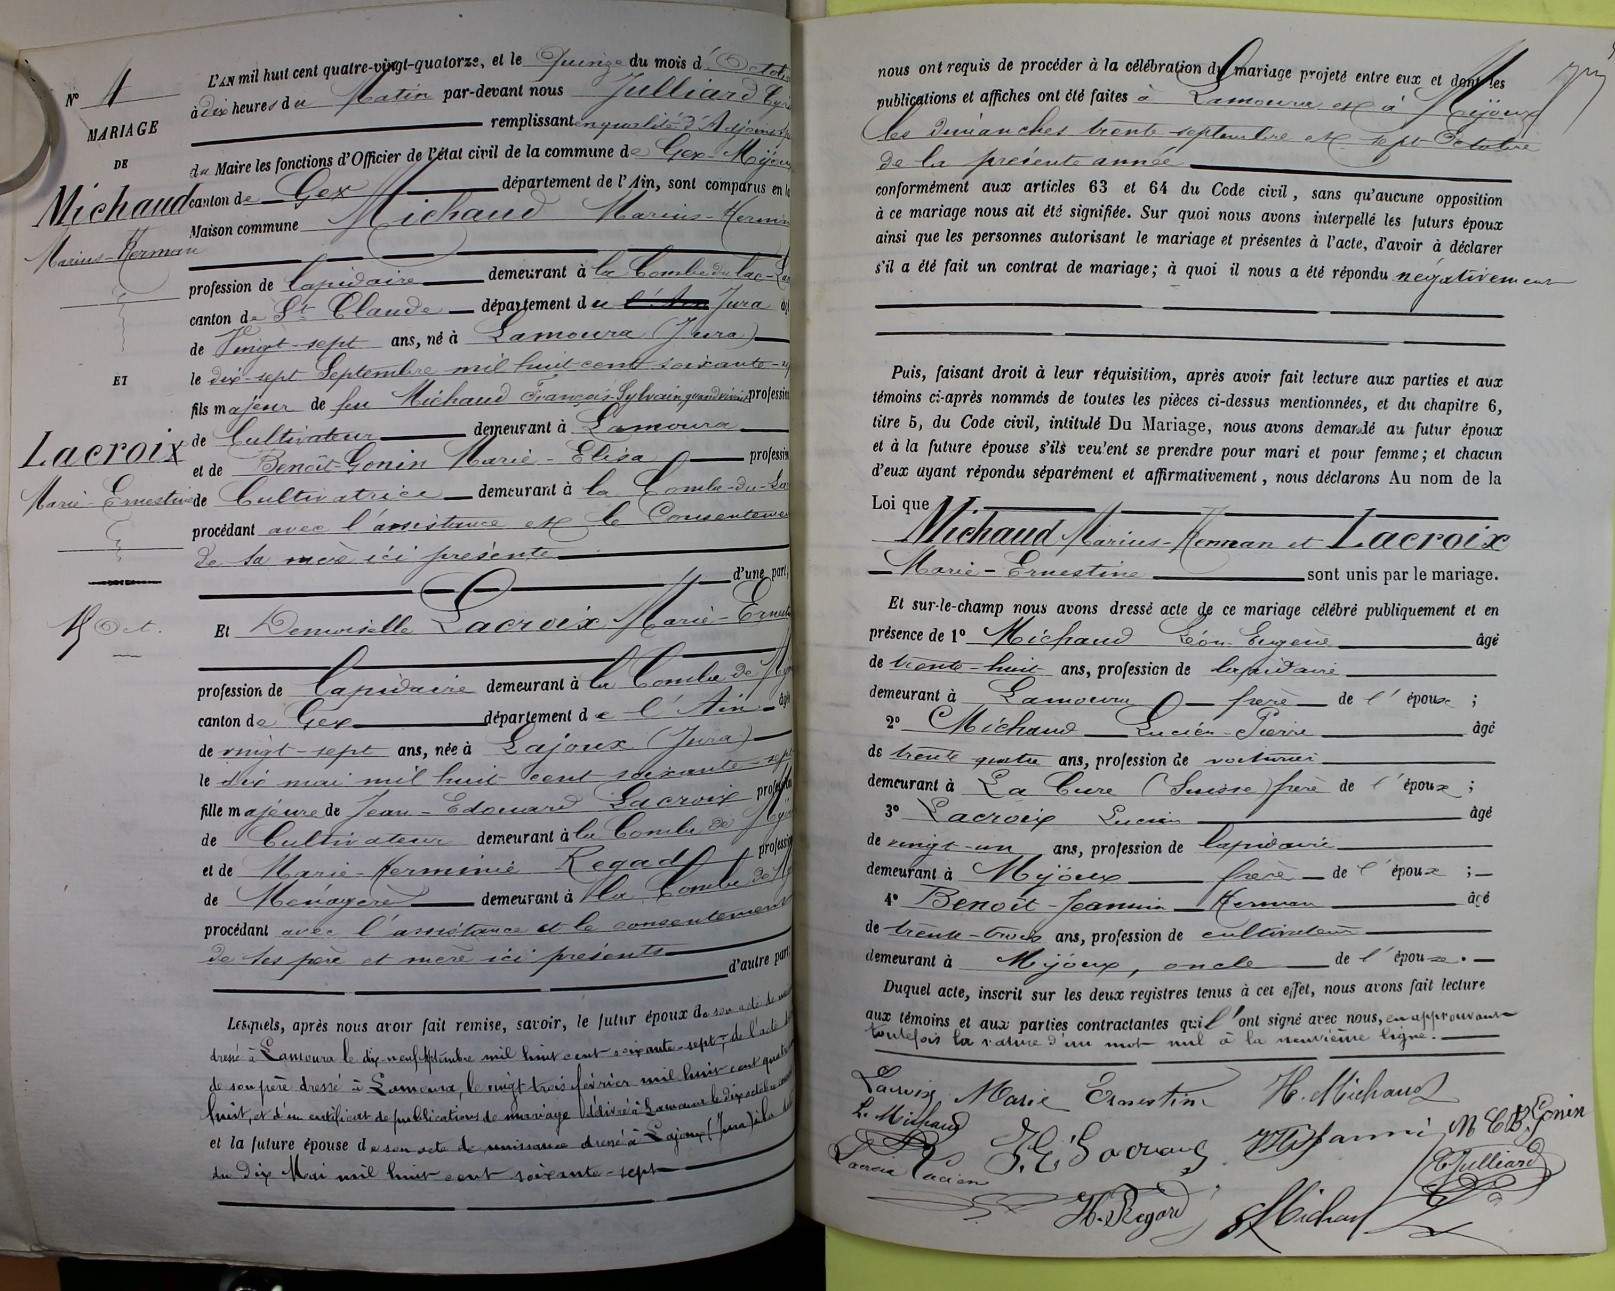 N° 4
MARIAGE
DE
Michaud
Marius-Herman
ET
Lacroix
Marie-Ernestine
15 Oct.
L'AN mil huit cent quatre-vingt-quatorze, et le Quinze du mois d'Octob
à dix heures du Matin par-devant nous Julliard
remplissant en qualité d'Adjoint
du Maire les fonctions d'Officier de l'état civil de la commune de Gex-Mijoux
canton de Gex département de l'Ain, sont comparus en la
Maison commune Michaud Marius-Herman
profession de lapidaire demeurant à la Combe du lac-La
canton de St Claude département du l'Ain Jura
de Vingt-sept ans, né à Lamoura (Jura)
le dix-sept Septembre mil huit cent soixante-
fils majeur de feu Michaud François-Sylvain quand vivait profession
de Cultivateur demeurant à Lamoura
et de Benoît-Gonin Marie-Elisa profession
de Cultivatrice demeurant à la Combe-du-La
procédant avec l'assistance et le Consentement
de sa mère ici présente
d'une part,
Et Demoiselle Lacroix Marie-Ernest
profession de Lapidaire demeurant à la Combe de
canton de Gex département de l'Ain âgée
de vingt-sept ans, née à Lajoux (Jura)
le dix mai mil huit cent soixante-sept
fille majeure de Jean-Edouard Lacroix profession
de Cultivateur demeurant à la Combe de
et de Marie-Herminie Regad profession
de Ménagère demeurant à la Combe de
procédant avec l'assistance et le consentement
de ses père et mère ici présents
d'autre part;
Lesquels, après nous avoir fait remise, savoir, le futur époux de son acte de
dressé à Lamoura le dix-neuf septembre mil huit cent soixante-sept, de l'acte de
de son père dressé à Lamoura, le vingt trois février mil huit cent quatre
huit, et d'un certificat de publications de mariage délivré à Lamoura le dix octobre
et la future épouse de son acte de naissance dressé à Lajoux (Jura) à la date
du dix Mai mil huit cent soixante-sept
nous ont requis de procéder à la célébration du mariage projeté entre eux et dont les
publications et affiches ont été faites à Lamoura et à Mijoux
les dimanches trente septembre et sept Octobre
de la présente année
conformément aux articles 63 et 64 du Code civil, sans qu'aucune opposition
à ce mariage nous ait été signifiée. Sur quoi nous avons interpellé les futurs époux
ainsi que les personnes autorisant le mariage et présentes à l'acte, d'avoir à déclarer
s'il a été fait un contrat de mariage; à quoi il nous a été répondu négativement
Puis, faisant droit à leur réquisition, après avoir fait lecture aux parties et aux
témoins ci-après nommés de toutes les pièces ci-dessus mentionnées, et du chapitre 6,
titre 5, du Code civil, intitulé Du Mariage, nous avons demandé au futur époux
et à la future épouse s'ils veulent se prendre pour mari et pour femme; et chacun
d'eux ayant répondu séparément et affirmativement, nous déclarons Au nom de la
Loi que
Michaud Marius-Herman et Lacroix
Marie-Ernestine sont unis par le mariage.
Et sur-le-champ nous avons dressé acte de ce mariage célébré publiquement et en
présence de 1° Michaud Léon-Eugène âgé
de trente-huit ans, profession de lapidaire
demeurant à Lamoura frère de l'époux ;
2° Michaud Lucien-Pierre âgé
de trente quatre ans, profession de voiturier
demeurant à La Cure (Suisse) frère de l'époux ;
3° Lacroix Lucien âgé
de vingt-un ans, profession de lapidaire
demeurant à Mijoux frère de l'épouse ;
4° Benoît-Jeannin Herman âgé
de trente-trois ans, profession de cultivateur
demeurant à Mijoux, oncle de l'épouse.
Duquel acte, inscrit sur les deux registres tenus à cet effet, nous avons fait lecture
aux témoins et aux parties contractantes qui l'ont signé avec nous, en approuvant
toutefois la rature d'un mot nul à la neuvième ligne.
Lacroix Marie Ernestine H. Michaud
L. Michaud J. E. Lacroix M E B. Gonin
Lacroix Lucien Julliard
H. Regad Michaud